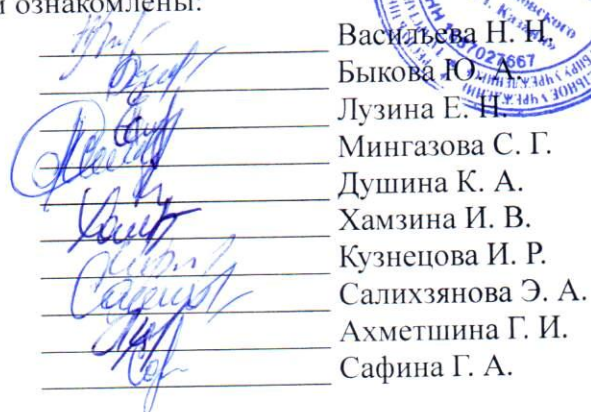 и ознакомлены:
Васильева Н. Н.
Быкова Ю. А.
Лузина Е. Н.
Мингазова С. Г.
Душина К. А.
Хамзина И. В.
Кузнецова И. Р.
Салихзянова Э. А.
Ахметшина Г. И.
Сафина Г. А.